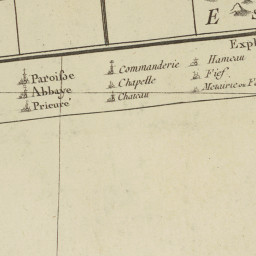 E
Expl
Paroisse Commanderie Hameau
Abbaye Chapelle Fief
Prieuré Chateau Metairie ou F